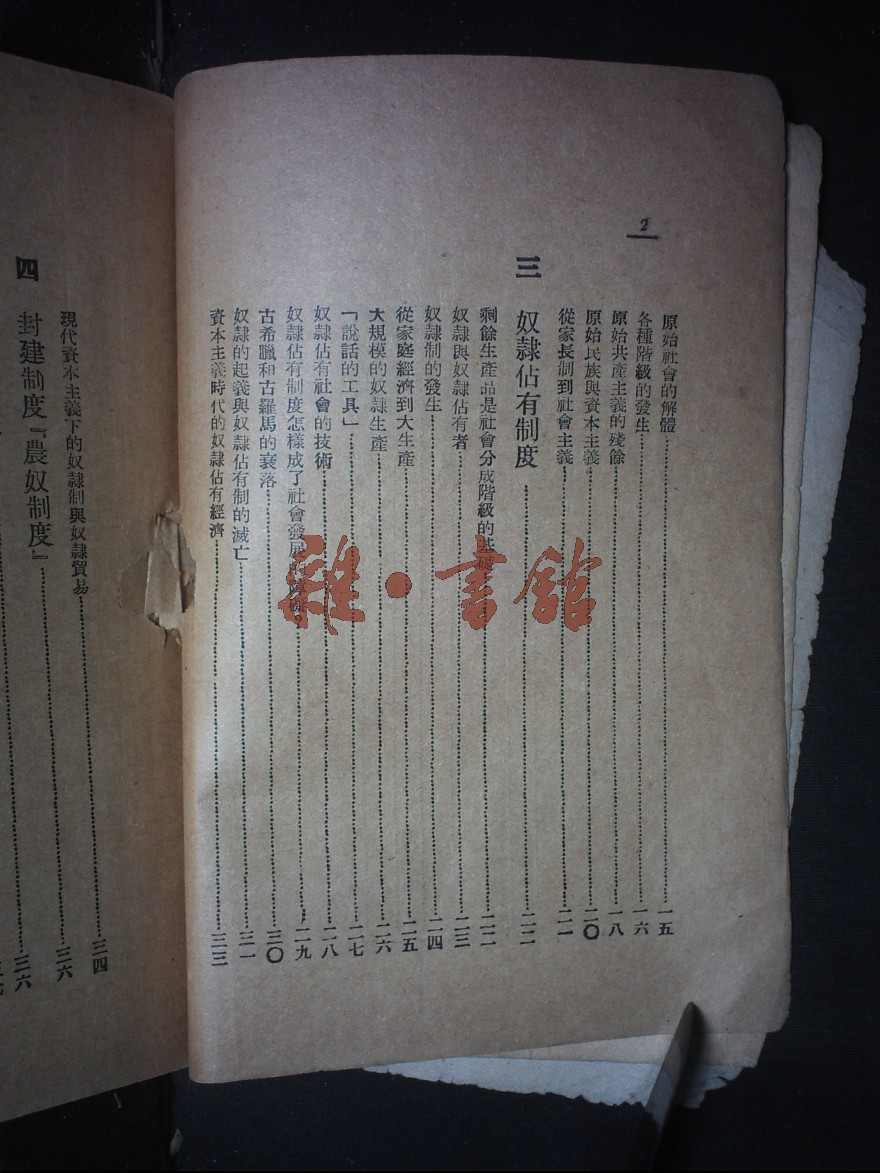 2
原始社會的解體……一五
各種階級的發生……一六
原始共產主義的殘餘……一八
原始民族與資本主義……二〇
從家長制到社會主義……二一
三 奴隸佔有制度……二二
剩餘生產品是社會分成階級的基礎……二二
奴隸與奴隸佔有者……二三
奴隸制的發生……二四
從家庭經濟到大生產……二五
大規模的奴隸生產……二六
「說話的工具」……二七
奴隸佔有社會的技術……二八
奴隸佔有制度怎樣成了社會發展的障礙?……二九
古希臘和古羅馬的衰落……三〇
奴隸的起義與奴隸佔有制的滅亡……三一
資本主義時代的奴隸佔有經濟……三三
三四
現代資本主義下的奴隸制與奴隸貿易……三六
四 封建制度『農奴制度』……三六
雜·書館